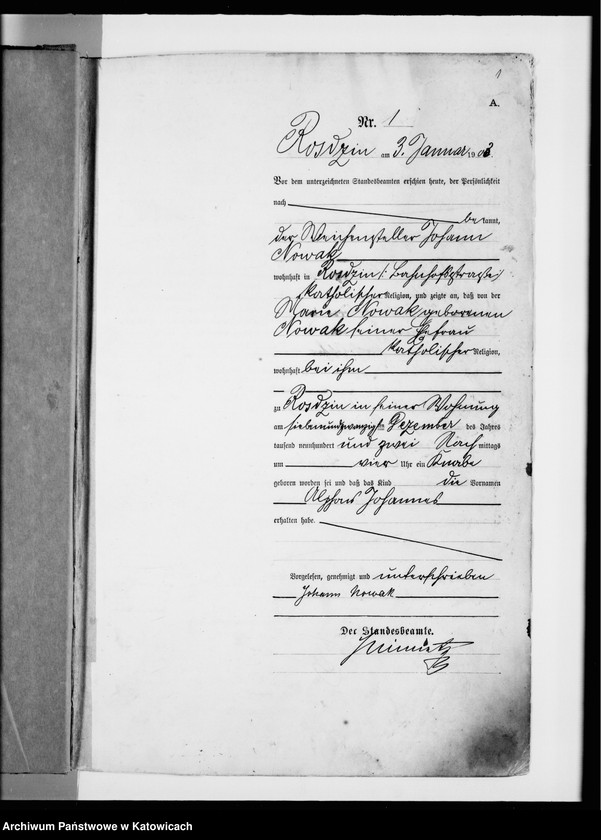 1
A.
Nr. 1
Rosdzin am 3. Januar 1903.
Vor dem unterzeichneten Standesbeamten erschien heute, der Persönlichkeit
nach bekannt,
der Weichensteller Johann
Nowak
wohnhaft in Rosdzin (: Bahnhofstraße :)
katholischer Religion, und zeigte an, daß von der
Marie Nowak geborenen
Nowak seiner Ehefrau
katholischer Religion,
wohnhaft bei ihm
zu Rosdzin in seiner Wohnung
am siebenundzwanzigsten Dezember des Jahres
tausend neunhundert und zwei Nachmittags
um vier Uhr ein Knabe
geboren worden sei und daß das Kind die Vornamen
Alphons Johannes
erhalten habe.
Vorgelesen, genehmigt und unterschrieben
Johann Nowak
Der Standesbeamte.
Archiwum Państwowe w Katowicach